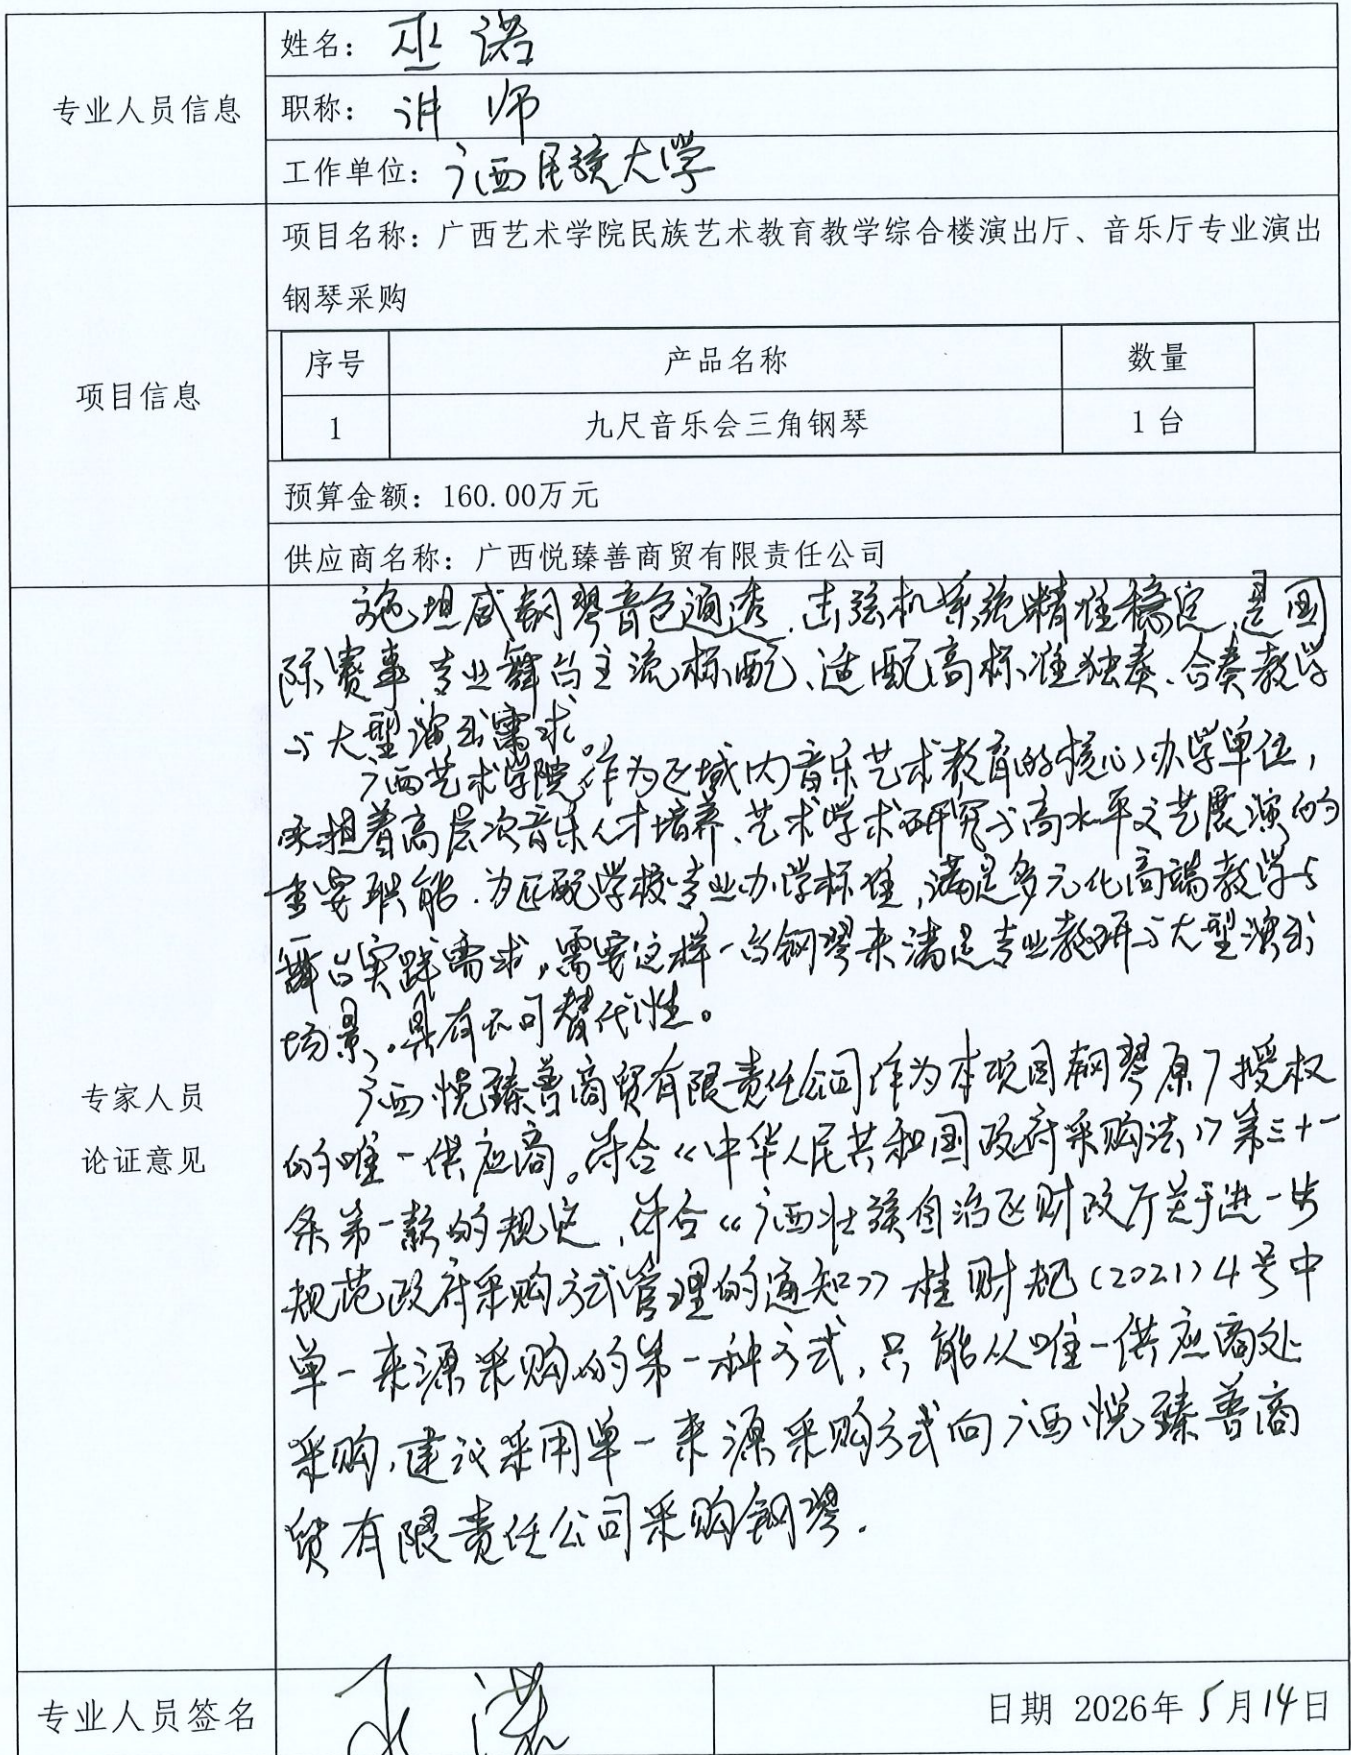 专业人员信息
姓名：巫诺
职称：讲师
工作单位：广西民族大学
项目信息
项目名称：广西艺术学院民族艺术教育教学综合楼演出厅、音乐厅专业演出
钢琴采购
序号 产品名称 数量
1 九尺音乐会三角钢琴 1台
预算金额：160.00万元
供应商名称：广西悦臻善商贸有限责任公司
专家人员
论证意见
施坦威钢琴音色通透、击弦机系统精准稳定，是国
际赛事、专业舞台主流标配、适配高标准独奏、合奏教学
与大型演出需求。
广西艺术学院作为区域内音乐艺术教育的核心办学单位，
承担着高层次音乐人才培养、艺术学术研究与高水平文艺展演的
重要职能.为匹配学校专业办学标准，满足多元化高端教学与
舞台实践需求，需要这样一台钢琴来满足专业教研与大型演出
场景，具有不可替代性。
广西悦臻善商贸有限责任公司作为本项目钢琴原厂授权
的唯一供应商。符合《中华人民共和国政府采购法》第三十一
条第一款的规定，符合《广西壮族自治区财政厅关于进一步
规范政府采购方式管理的通知》桂财规（2021）4号中
单一来源采购的第一种方式，只能从唯一供应商处
采购，建议采用单一来源采购方式向广西悦臻善商
贸有限责任公司采购钢琴.
专业人员签名 巫诺 日期 2026年5月14日